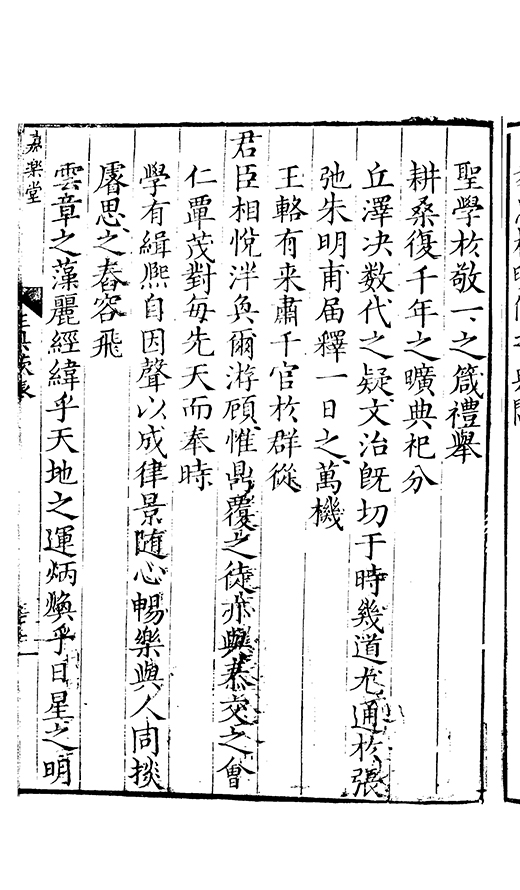 聖學於敬一之箴禮舉
耕桑復千年之曠典祀分
丘澤决数代之疑文治旣切于時幾道尤通於張
弛朱明甫届釋一日之萬機
王輅有来肅千官於群從
君臣相悅泮奐爾游顧惟鼎覆之徒亦與泰交之會
仁覃茂對每先天而奉時
學有緝熈自因聲以成律景随心暢樂與人同掞
睿思之舂容飛
雲章之藻麗經緯乎天地之運炳煥乎日星之明
嘉樂堂